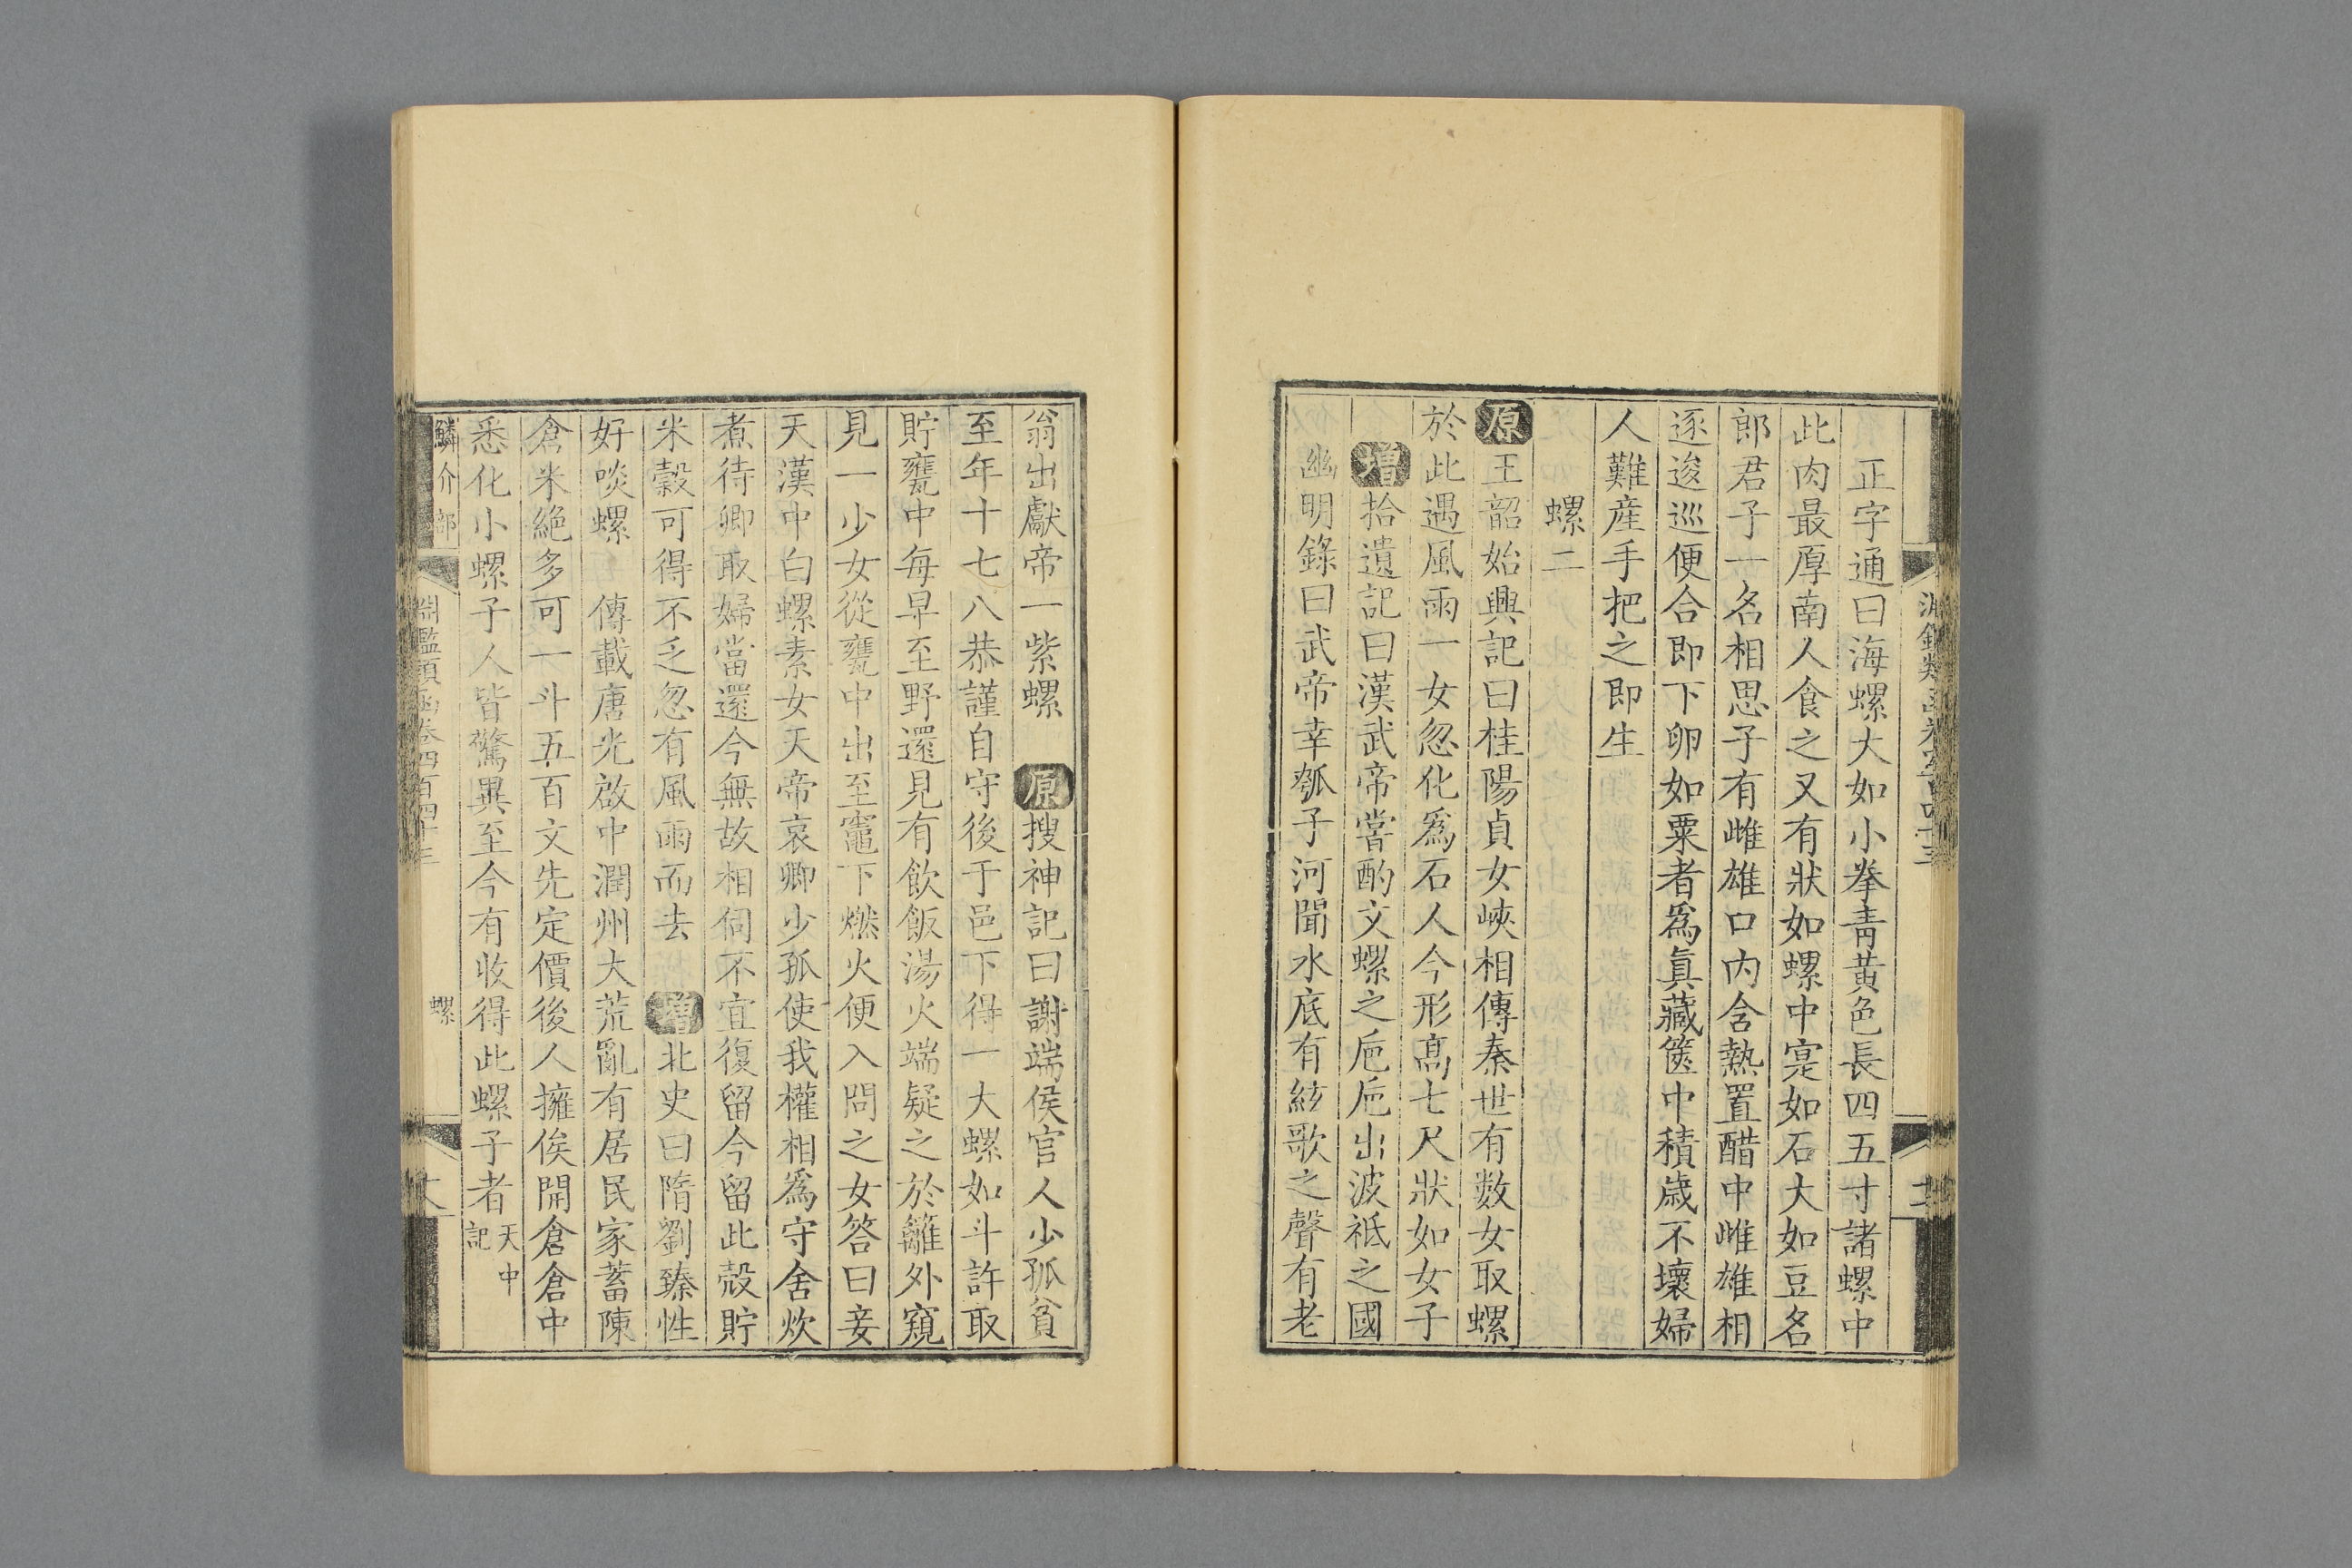 正字通曰海螺大如小拳青黃色長四五寸諸螺中
此肉最厚南人食之又有狀如螺中寔如石大如豆名
郎君子一名相思子有雌雄口內含熱置醋中雌雄相
逐逡巡便合即下卵如粟者爲眞藏篋中積歲不壞婦
人難產手把之即生
螺二
原王韶始興記曰桂陽貞女峽相傳秦世有數女取螺
於此遇風雨一女忽化爲石人今形高七尺狀如女子
增拾遺記曰漢武帝嘗酌文螺之巵巵出波祇之國
幽明錄曰武帝幸瓠子河聞水底有絃歌之聲有老
翁出獻帝一紫螺 原搜神記曰謝端侯官人少孤貧
至年十七八恭謹自守後于邑下得一大螺如斗許取
貯甕中每早至野還見有飲飯湯火端疑之於籬外窺
見一少女從甕中出至竈下燃火便入問之女答曰妾
天漢中白螺素女天帝哀卿少孤使我權相爲守舍炊
煮待卿取婦當還今無故相伺不宜復留今留此殼貯
米穀可得不乏忽有風雨而去 增北史曰隋劉臻性
好啖螺 傳載唐光啟中潤州大荒亂有居民家蓄陳
倉米絕多可一斗五百文先定價後人擁俟開倉倉中
悉化小螺子人皆驚異至今有收得此螺子者天中記
鱗介部 淵鑑類函卷四百四十三 螺